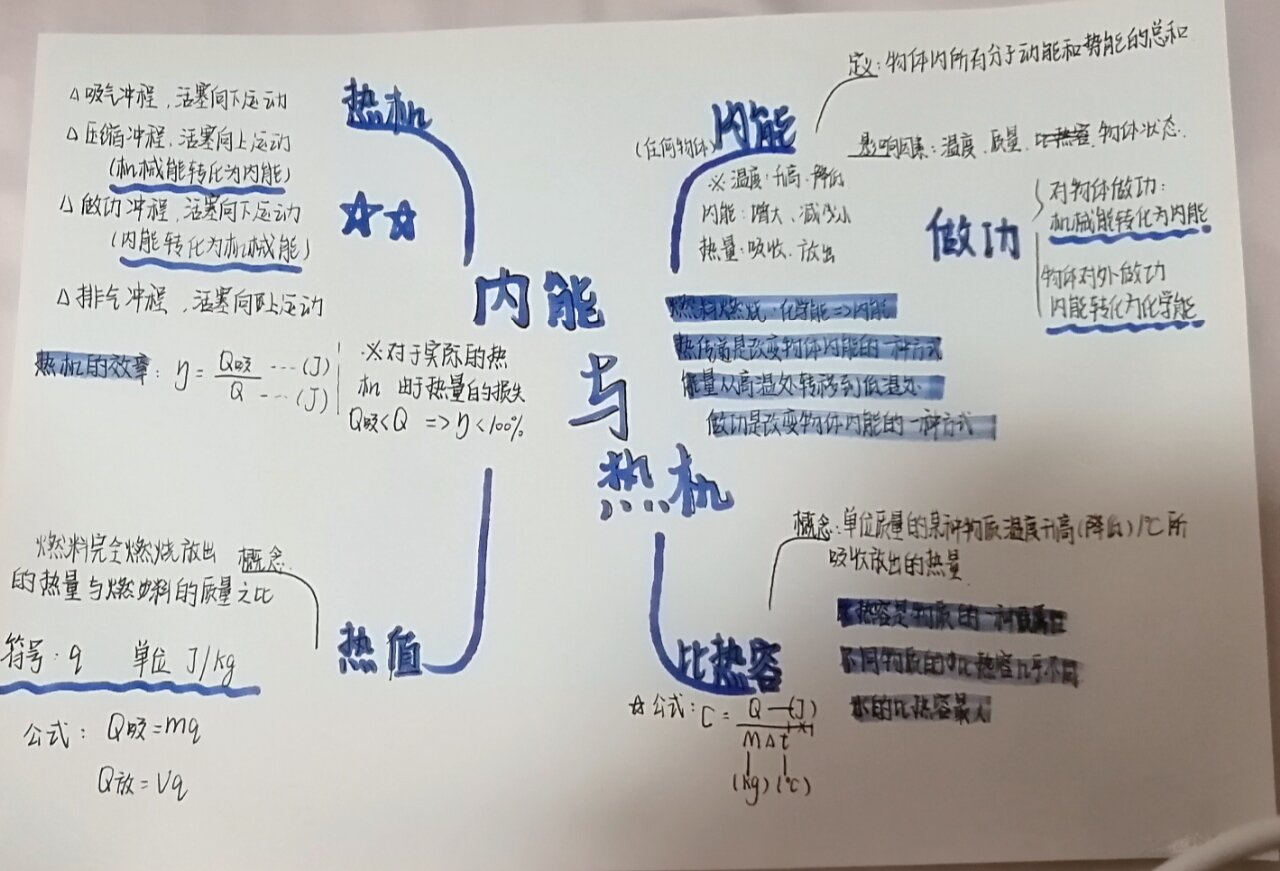 内能
与
热机
热机
△吸气冲程，活塞向下运动
△压缩冲程，活塞向上运动
(机械能转化为内能)
△做功冲程，活塞向下运动
(内能转化为机械能)
△排气冲程，活塞向上运动
☆☆
热机的效率：η = Q吸/Q ···(J) ···(J)
※对于实际的热
机 由于热量的损失
Q吸<Q => η<100%
内能
(任何物体)
定义：物体内所有分子动能和势能的总和
影响因素：温度、质量、比热容、物体状态.
※ 温度：升高、降低
内能：增大、减少小
热量：吸收、放出
做功
对物体做功：
机械能转化为内能
物体对外做功
内能转化为化学能
燃料燃烧：化学能=>内能
热传递是改变物体内能的一种方式
能量从高温处转移到低温处
做功是改变物体内能的一种方式
热值
概念
燃料完全燃烧放出
的热量与燃料的质量之比
符号：q 单位 J/kg
公式：Q吸=mq
Q放=Vq
比热容
概念：单位质量的某种物质温度升高(降低)1℃所
吸收放出的热量
热容是物质的一种
不同物质的比热容几乎不同
水的比热容最大
☆公式：C = Q—(J)
M△t
(kg)(℃)